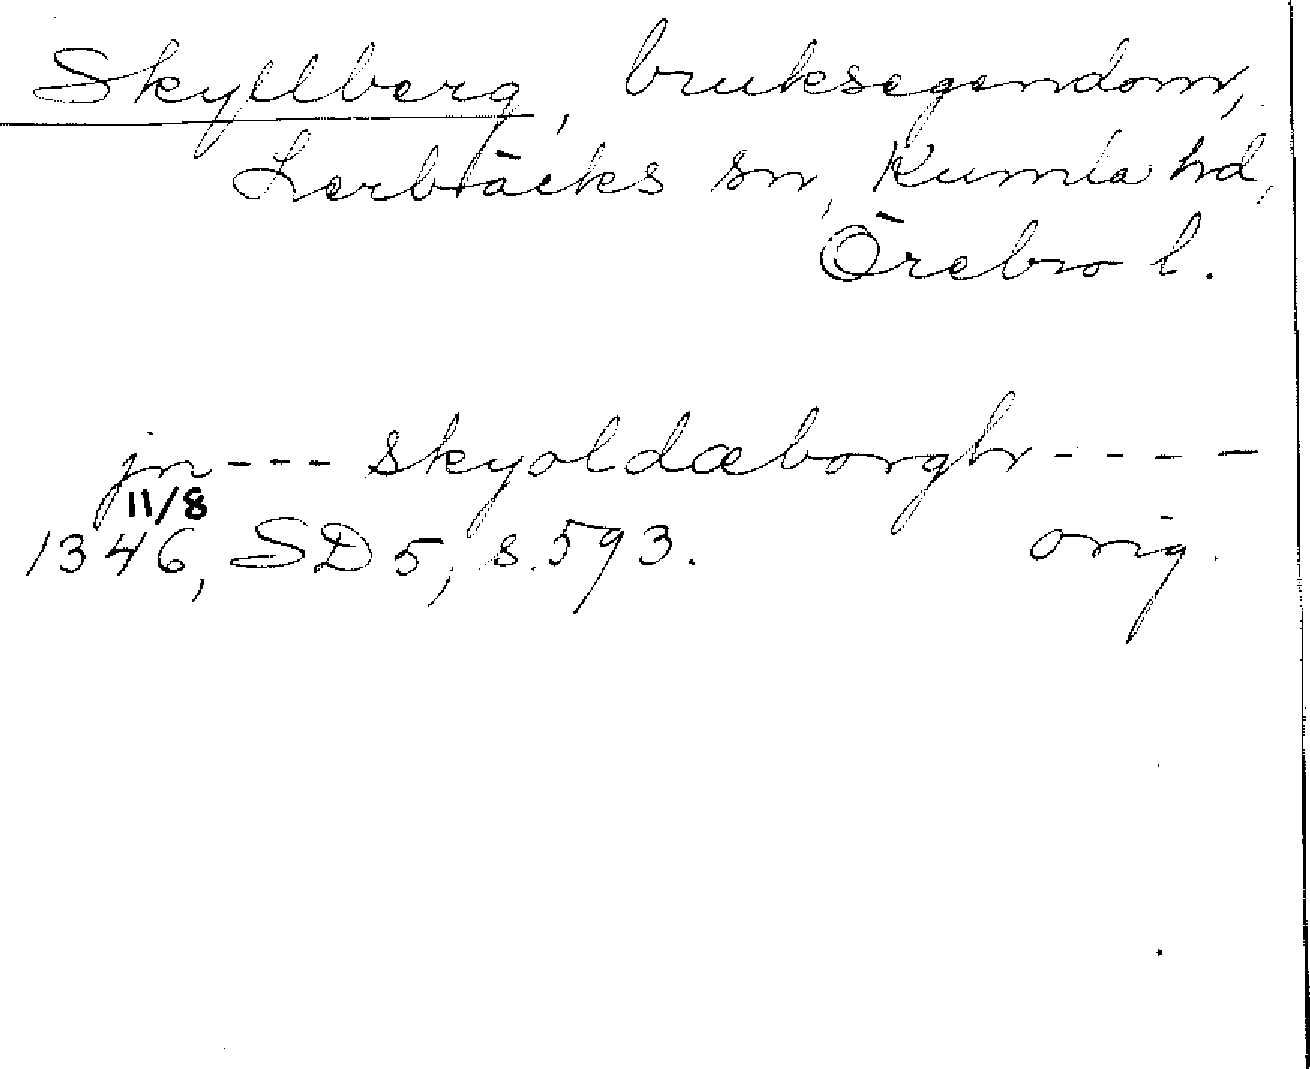 Skyllberg, bruksegendom,
Lerbäcks sn, Kumla hd,
Örebro l.
jn --- skyoldæborgh ----
11/8
1346, SD 5, s. 593. orig.